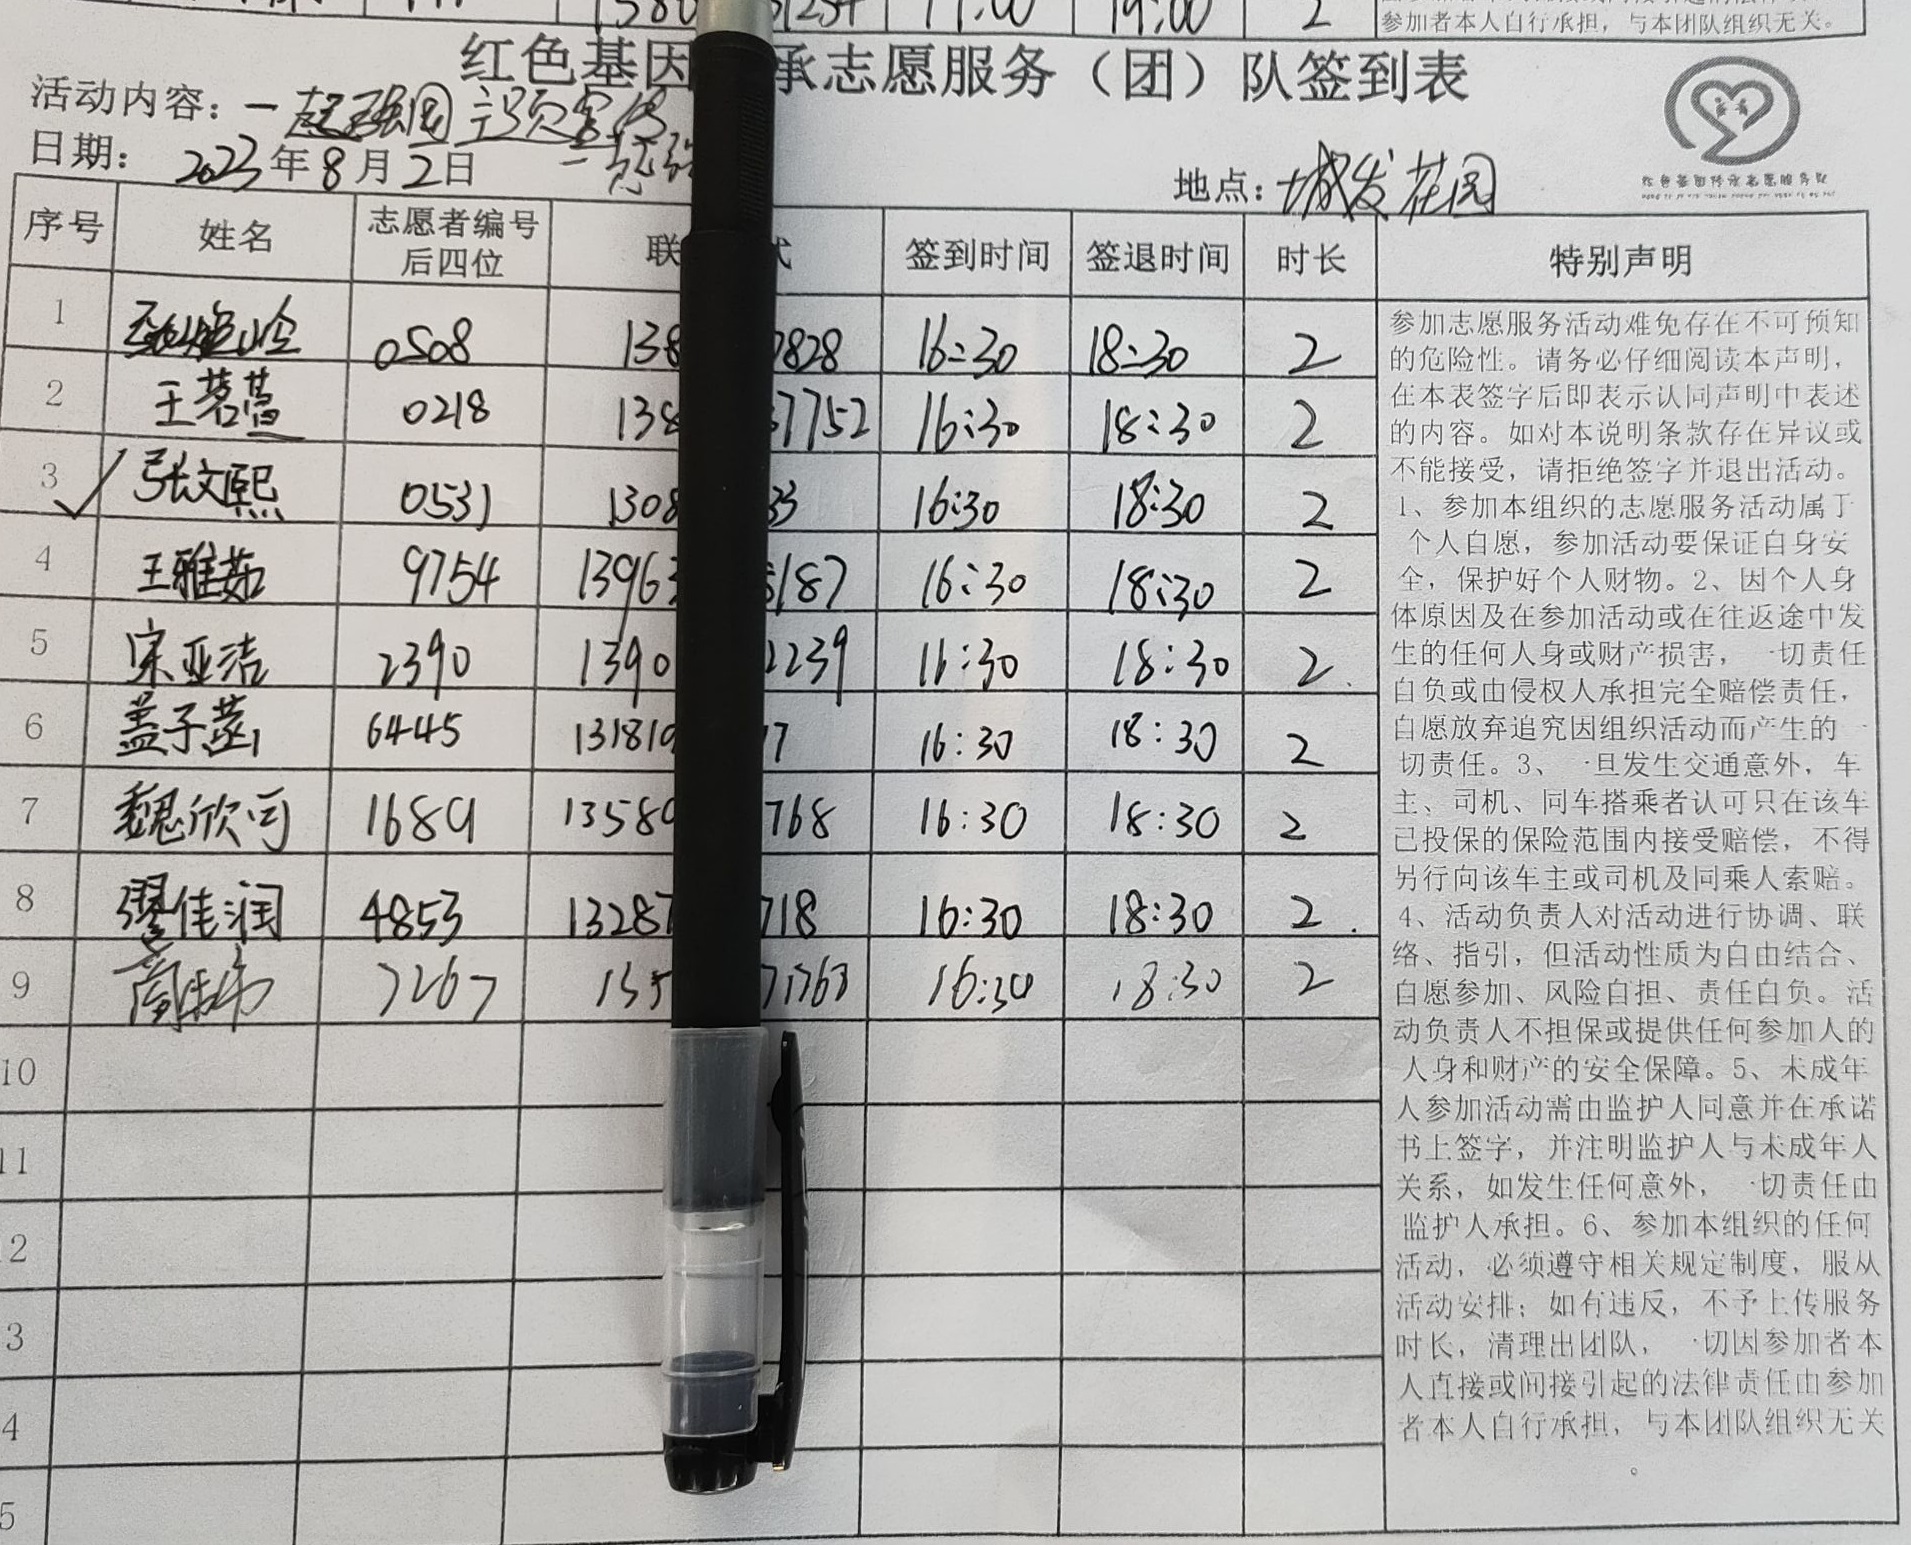 参加者本人自行承担，与本团队组织无关。
红色基因 承志愿服务（团）队签到表
活动内容：一起强国主题宣传
日期：2023年8月2日
地点：城发花园
红色基因传承志愿服务队
序号 姓名 志愿者编号后四位 联 式 签到时间 签退时间 时长 特别声明
1 0508 138 7828 16:30 18:30 2
2 王茗萱 0218 138 7752 16:30 18:30 2
3 张文熙 0531 1308 33 16:30 18:30 2
4 王雅茹 9754 13963 8187 16:30 18:30 2
5 宋亚洁 2390 1390 2239 16:30 18:30 2
6 盖子菡 6445 131810 17 16:30 18:30 2
7 魏欣可 1689 13580 768 16:30 18:30 2
8 翟佳润 4853 13287 718 16:30 18:30 2
9 7267 135 71763 16:30 18:30 2
10
11
2
3
4
5
参加志愿服务活动难免存在不可预知
的危险性。请务必仔细阅读本声明，
在本表签字后即表示认同声明中表述
的内容。如对本说明条款存在异议或
不能接受，请拒绝签字并退出活动。
1、参加本组织的志愿服务活动属于
个人自愿，参加活动要保证自身安
全，保护好个人财物。2、因个人身
体原因及在参加活动或在往返途中发
生的任何人身或财产损害，一切责任
自负或由侵权人承担完全赔偿责任，
自愿放弃追究因组织活动而产生的一
切责任。3、一旦发生交通意外，车
主、司机、同车搭乘者认可只在该车
已投保的保险范围内接受赔偿，不得
另行向该车主或司机及同乘人索赔。
4、活动负责人对活动进行协调、联
络、指引，但活动性质为自由结合、
自愿参加、风险自担、责任自负。活
动负责人不担保或提供任何参加人的
人身和财产的安全保障。5、未成年
人参加活动需由监护人同意并在承诺
书上签字，并注明监护人与未成年人
关系，如发生任何意外，一切责任由
监护人承担。6、参加本组织的任何
活动，必须遵守相关规定制度，服从
活动安排；如有违反，不予上传服务
时长，清理出团队，一切因参加者本
人直接或间接引起的法律责任由参加
者本人自行承担，与本团队组织无关
。